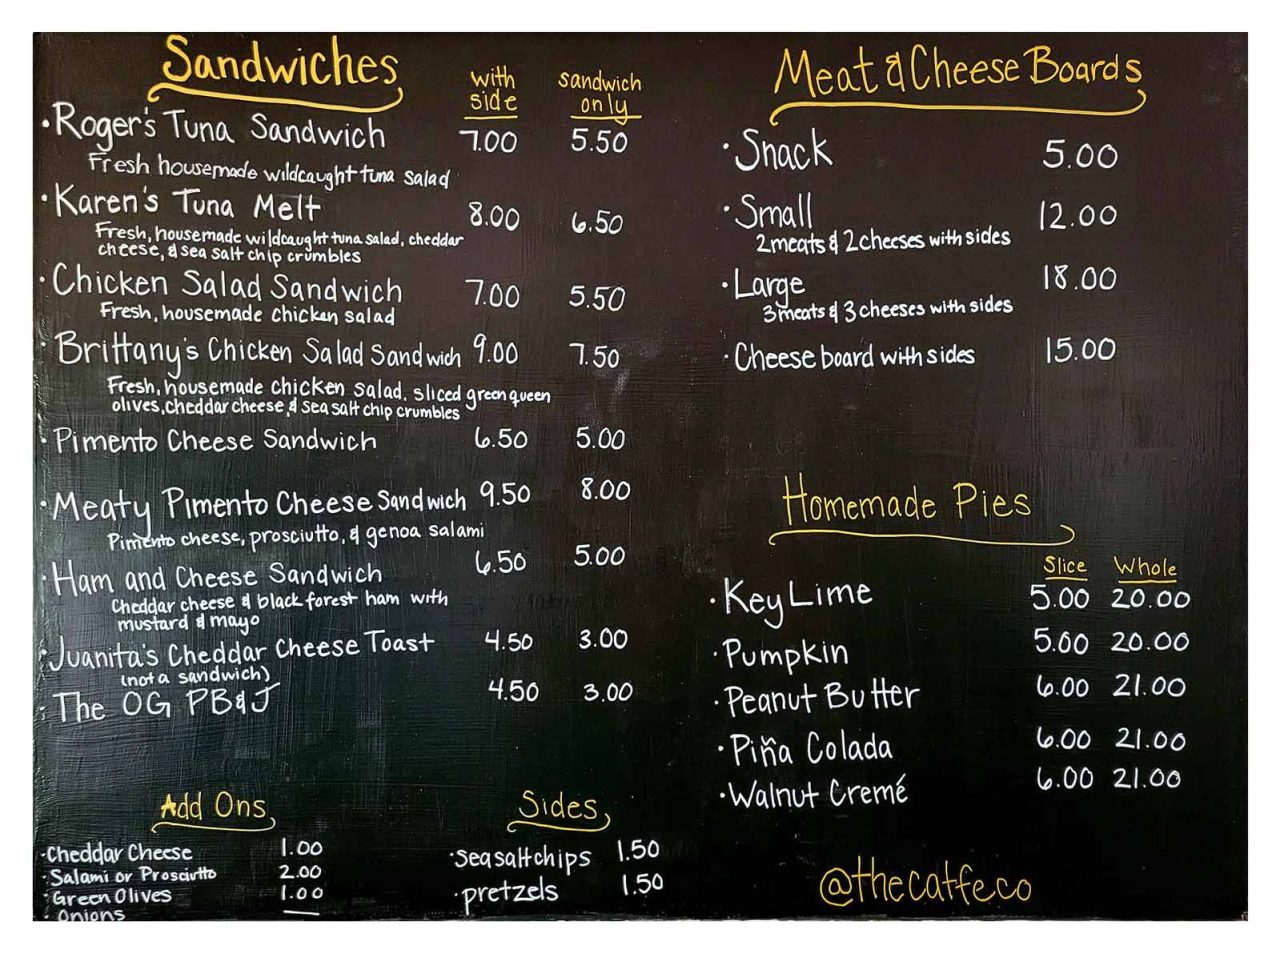 Sandwiches
with side
sandwich only
·Roger's Tuna Sandwich 7.00 5.50
Fresh housemade wildcaught tuna salad
·Karen's Tuna Melt 8.00 6.50
Fresh, housemade wildcaught tuna salad, cheddar
cheese, & sea salt chip crumbles
·Chicken Salad Sandwich 7.00 5.50
Fresh, housemade chicken salad
·Brittany's Chicken Salad Sandwich 9.00 7.50
Fresh, housemade chicken salad, sliced green queen
olives, cheddar cheese, & sea salt chip crumbles
·Pimento Cheese Sandwich 6.50 5.00
·Meaty Pimento Cheese Sandwich 9.50 8.00
Pimento cheese, prosciutto, & genoa salami
·Ham and Cheese Sandwich 6.50 5.00
Cheddar cheese & black forest ham with
mustard & mayo
·Juanita's Cheddar Cheese Toast 4.50 3.00
(not a sandwich)
·The OG PB&J 4.50 3.00
Add Ons
·Cheddar Cheese 1.00
·Salami or Prosciutto 2.00
·Green Olives 1.00
·Onions —
Sides
·sea salt chips 1.50
·pretzels 1.50
Meat & Cheese Boards
·Snack 5.00
·Small 12.00
2 meats & 2 cheeses with sides
·Large 18.00
3 meats & 3 cheeses with sides
·Cheese board with sides 15.00
Homemade Pies
Slice Whole
·Key Lime 5.00 20.00
·Pumpkin 5.00 20.00
·Peanut Butter 6.00 21.00
·Piña Colada 6.00 21.00
·Walnut Cremé 6.00 21.00
@thecatfeco